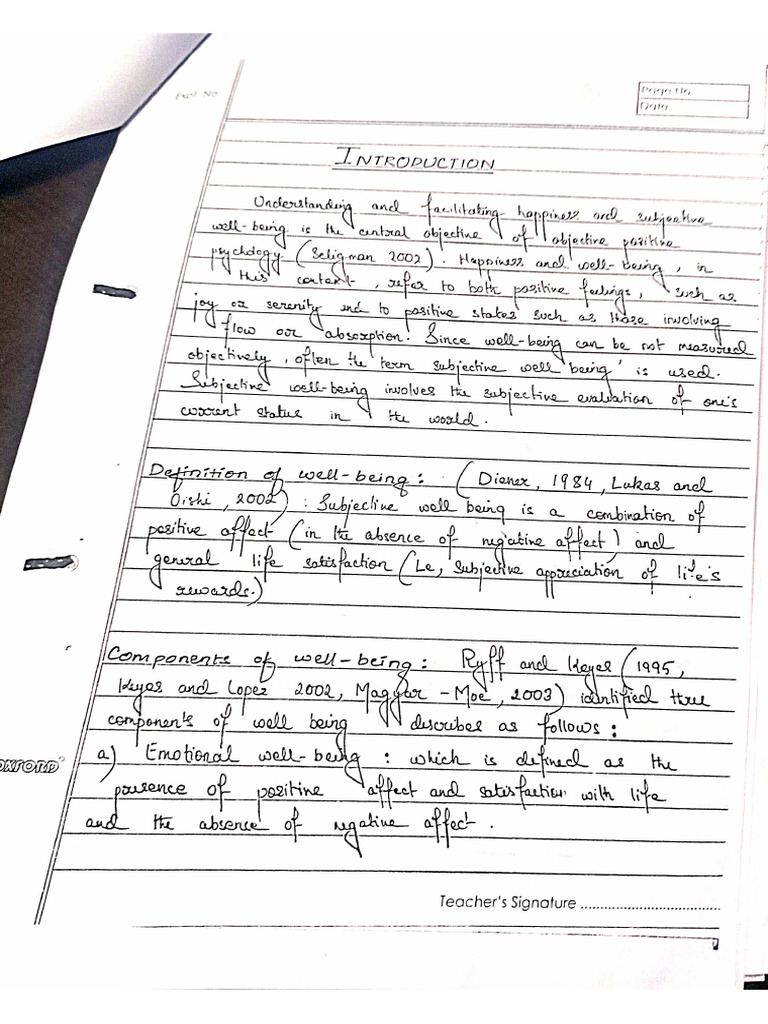 Expt. No
Page No.
Date
INTRODUCTION
Understanding and facilitating happiness and subjective
well-being is the central objective of objective positive
psychology (Seligman 2002). Happiness and well-being, in
this context, refer to both positive feelings, such as
joy or serenity and to positive states such as those involving
flow or absorption. Since well-being can be not measured
objectively, often the term subjective well being' is used.
Subjective well-being involves the subjective evaluation of one's
current status in the world.
Definition of well-being: (Diener, 1984, Lukas and
Oishi, 2002) : Subjective well being is a combination of
positive affect (in the absence of negative affect) and
general life satisfaction (i.e, subjective appreciation of life's
rewards.)
Components of well-being: Ryff and Keyes (1995,
Keyes and Lopez 2002, Magyar-Moe, 2003) identified three
components of well being describes as follows:
a) Emotional well-being : which is defined as the
OXFORD
presence of positive affect and satisfaction with life
and the absence of negative affect.
Teacher's Signature ..................................